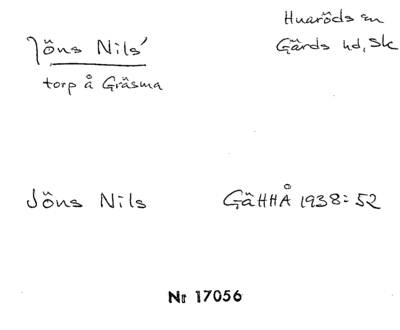 Jöns Nils'
torp å Gräsma
Huaröds sn
Gärds hd, Sk
Jöns Nils
GäHHÅ 1938:52
Nr 17056